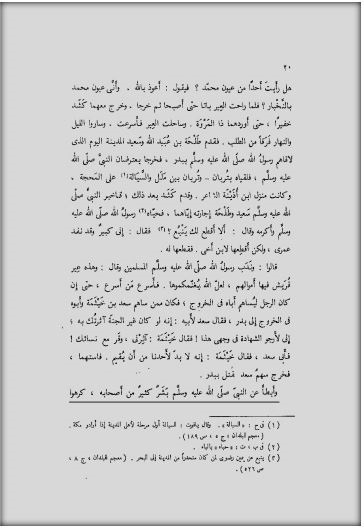 ٢٠
هل رأيتَ أحدًا من عيون محمّد ؟ فيقول : أعوذ بالله . وأنَّى عيون محمد
بالنَّخْبار ؟ فلما راحت العِير باتا حتى أصبحا ثم خرجا . وخرج معهما كَشَد
خفيرًا ، حتى أوردهما ذا المَرْوَة . وساحلت العِير فأسرعت . وساروا الليل
والنهار فَرَقًا من الطلب . فقدم طَلْحَة بن عُبَيد الله وسَعيد المدينة اليوم الذى
لاقاهم رسولُ الله صلّى الله عليه وسلّم ببدر ، فخرجا يعترضان النبىَّ صلّى الله
عليه وسلّم ، فلقياه بتُربان ــ وتُربان بين مَلَل والسَّيالة(١) على المحجة .
وكانت منزل ابن أُذَيْنَة الشاعر . وقدم كَشَد بعد ذلك ؛ فأخبر النبىَّ صلّى
الله عليه وسلّم سَعيد وطَلْحَة إجارته إيّاهما ، فحيّاه(٢) رسولُ الله صلّى الله عليه
وسلّم وأكرمه وقال : ألا أُقطع لك يَنْبُع ؟(٣) فقال : إنى كبيرٌ وقد نفد
عمرى ، ولكن أقطِعها لابن أخى . فقطعها له .
قالوا : وندَب رسولُ الله صلّى الله عليه وسلّم المسلمين وقال : وهذه عِير
قُرَيش فيها أموالهم ، لعلّ الله يُغنِّمكموها . فأسرع مَن أسرع ، حتى إن
كان الرجل ليُساهم أباه فى الخروج ؛ فكان ممن ساهم سعد بن خَيْثَمَة وأبوه
فى الخروج إلى بدر ، فقال سعد لأبيه : إنه لو كان غير الجنّة آثرتُك به ؛
إنى لأرجو الشهادة فى وجهى هذا ! فقال خَيْثَمَة : آثِرْنى ، وقَر مع نسائك !
فأبى سعد ، فقال خَيْثَمَة : إنه لا بدّ لأحدنا من أن يُقيم . فاستهما ،
فخرج سهمُ سعد فقُتل ببدر .
وأبطأ عن النبىّ صلّى الله عليه وسلّم بَشَرٌ كثيرٌ من أصحابه ، كرهوا
(١) فى ح : « السبالة » . وقال ياقوت : السيالة أول مرحلة لأهل المدينة إذا أرادوا مكة .
( معجم البلدان ، ج ٥ ، ص ١٨٩ ) .
(٢) فى ب ، ت : « حباه » بالباء .
(٣) ينبع عن يمين رضوى لمن كان منحدرًا من المدينة إلى البحر . ( معجم البلدان ، ج ٨ ،
ص ٥٢٦ ) .